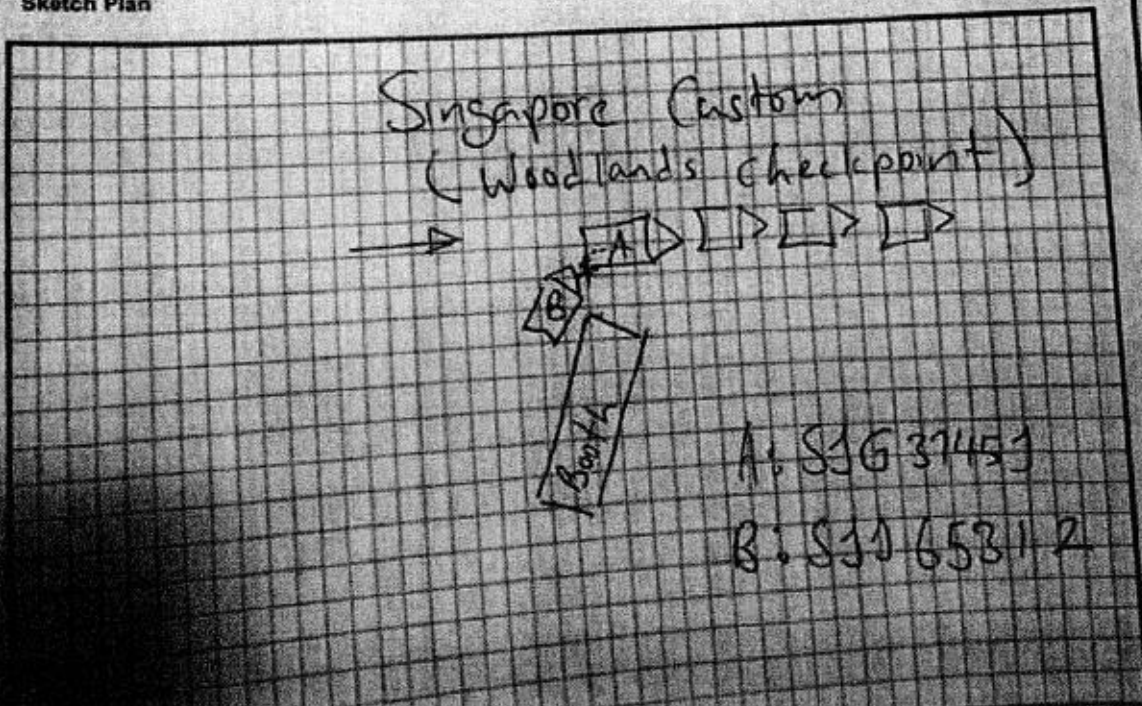 Sketch Plan
Singapore Custom
(Woodlands checkpoint)
A
B
Booth
A: SJG 3745J
B: SJD 6531 Z